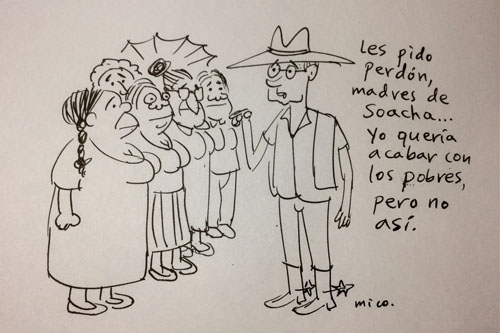 Les pido
perdón,
madres de
Soacha...
Yo quería
acabar con
los pobres,
pero no
así.
mico.